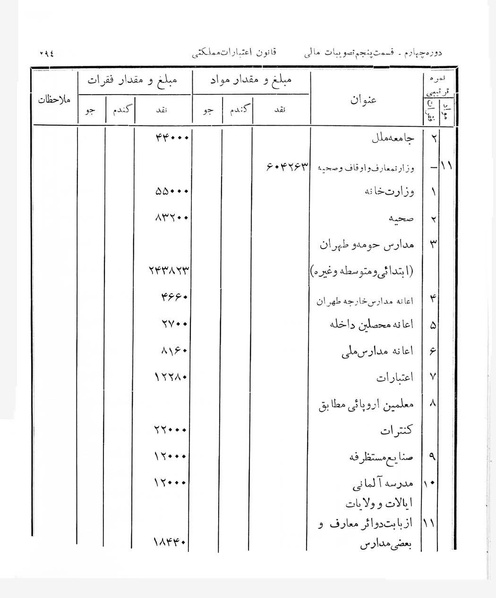 دوره چهارم - قسمت پنجم تصویبات مالی قانون اعتبارات مملکتی ۲۹۴
نمره ترتیبی عنوان مبلغ و مقدار مواد مبلغ و مقدار فقرات ملاحظات
مواد فقرات نقد گندم جو نقد گندم جو
۲ جامعه ملل ۴۴۰۰۰
۱۱ — وزارت معارف و اوقاف و صحیه ۶۰۴۲۶۳
۱ وزارت خانه ۵۵۰۰۰
۲ صحیه ۸۳۲۰۰
۳ مدارس حومه و طهران
(ابتدائی و متوسطه و غیره) ۲۴۳۸۲۳
۴ اعانه مدارس خارجه طهران ۴۶۶۰
۵ اعانه محصلین داخله ۲۷۰۰
۶ اعانه مدارس ملی ۸۱۶۰
۷ اعتبارات ۱۲۲۸۰
۸ معلمین اروپائی مطابق
کنترات ۲۲۰۰۰
۹ صنایع مستظرفه ۱۲۰۰۰
۱۰ مدرسه آلمانی ۱۲۰۰۰
ایالات و ولایات
۱۱ از بابت دوائر معارف و
بعضی مدارس ۱۸۴۴۰